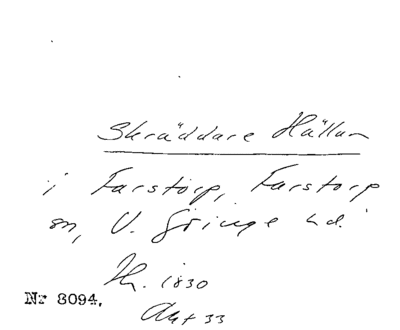 Skräddare Hällan
i Farstorp, Farstorp
sn, V. Göinge hd.
Th. 1830
Nr 8094.
Akt 33